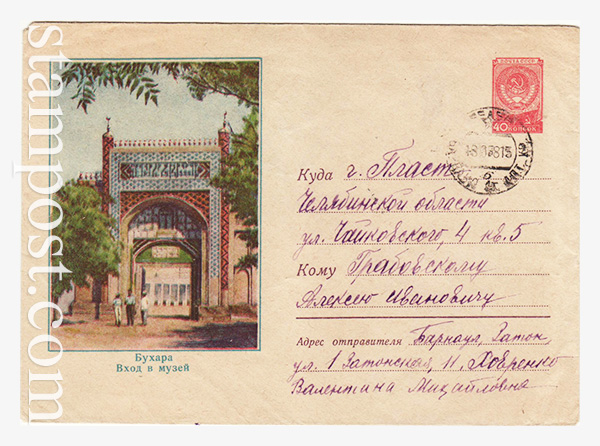 stampost.com
ПОЧТА СССР
40 КОПЕЕК
Куда г. Пласт
Челябинской области
ул. Чайковского, 4 кв. 5
Кому Грабовскому
Алексею Ивановичу
Адрес отправителя Барнаул, Затон,
ул. 1 Затонская, 11,
Валентина Михайловна
Бухара
Вход в музей